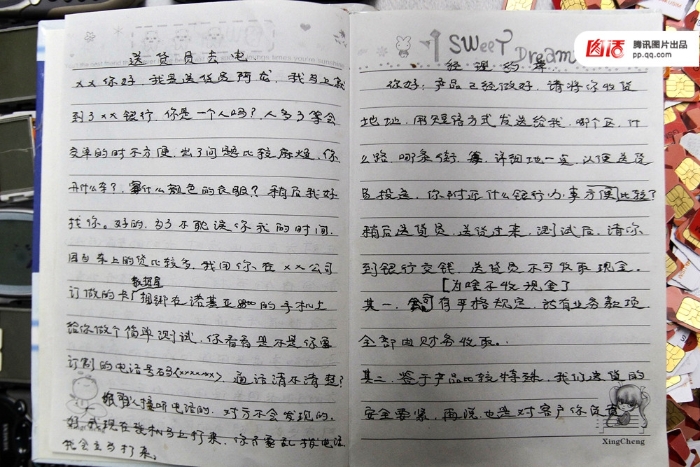 送货员去电
xx你好,我是送货员阿龙,我马上就
到了xx银行,你是一个人吗?人多了等会
交车的时不方便,出了问题比较麻烦,你
开什么车?什么颜色的衣服?稍后我好
找你。好的,为了不耽误你我的时间,
因为车上的货比较多,我问你,在xx公司
订做的卡数据是捆绑在诺基亚的手机上
给你做个简单测试,你看看是不是你要
订制的电话号码(xxxxxxx),通话清不清楚?
别人接听电话的,对方不会发现的,
好,我现在
我会主动打来。
SWeeT Dream
经理约单
你好:产品已经做好,请将你收货
地址,用短信方式发送给我,哪个区,什
么路,哪条街,等,详细地一点,以便送货
员投递,你附近什么银行办事方便比较?
稍后送货员送货过来,测试后,请你
到银行交钱,送货员不可收取现金。
[为啥不收现金了
其一,公司有严格规定,所有业务款项
全部由财务收取。
其二,鉴于产品比较特殊,我们送货的
安全要紧,再说,也是对客户你负责
XingCheng
图话
腾讯图片出品
pp.qq.com